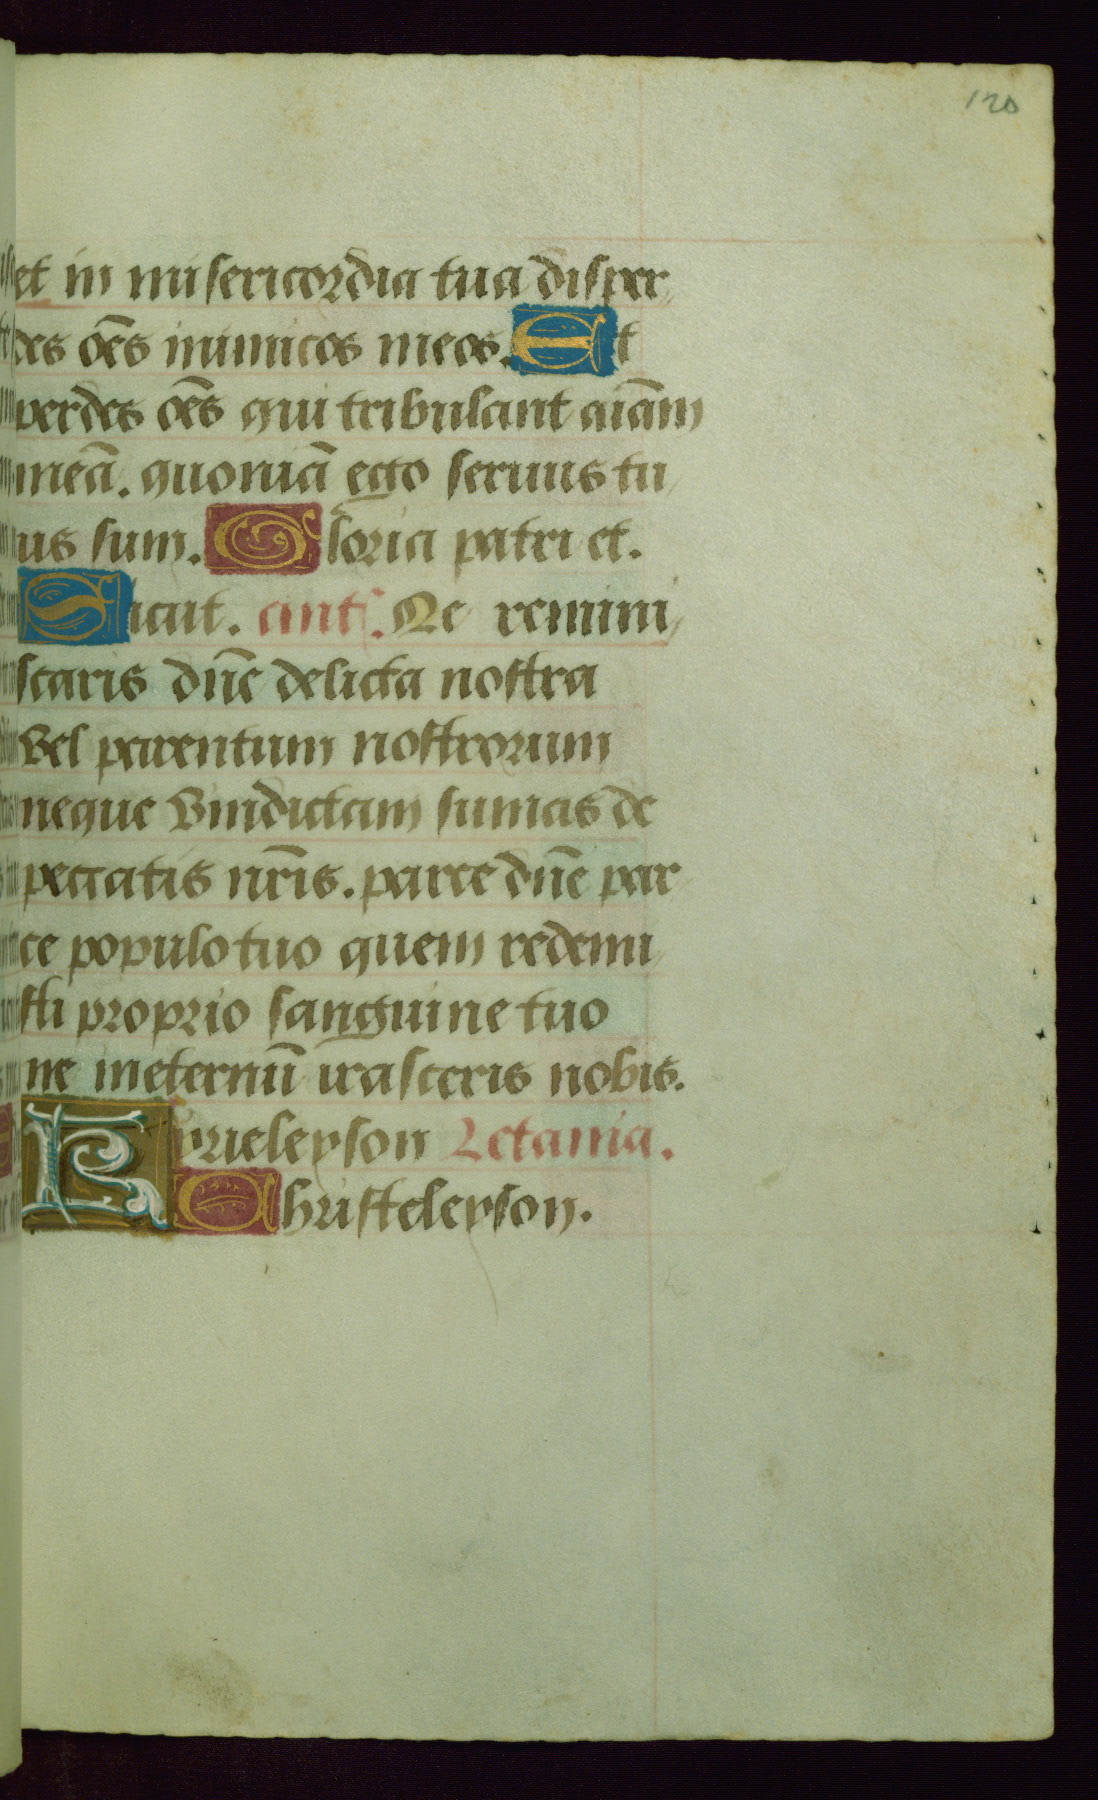 120
et in misericordia tua disper
des oēs inimicos meos. Et
perdes oēs qui tribulant aīam
meā. quoniā ego seruus tu
us sum. Gloria patri et.
Sicut. ant. Ne remini
scaris dn̄e delicta nostra
vel parentum nostrorum
neque vindictam sumas de
peccatis nr̄is. parce dn̄e par
ce populo tuo quem redemi
sti proprio sanguine tuo
ne ineternū irasceris nobis.
Kyrieleyson Letania.
Christeleyson.